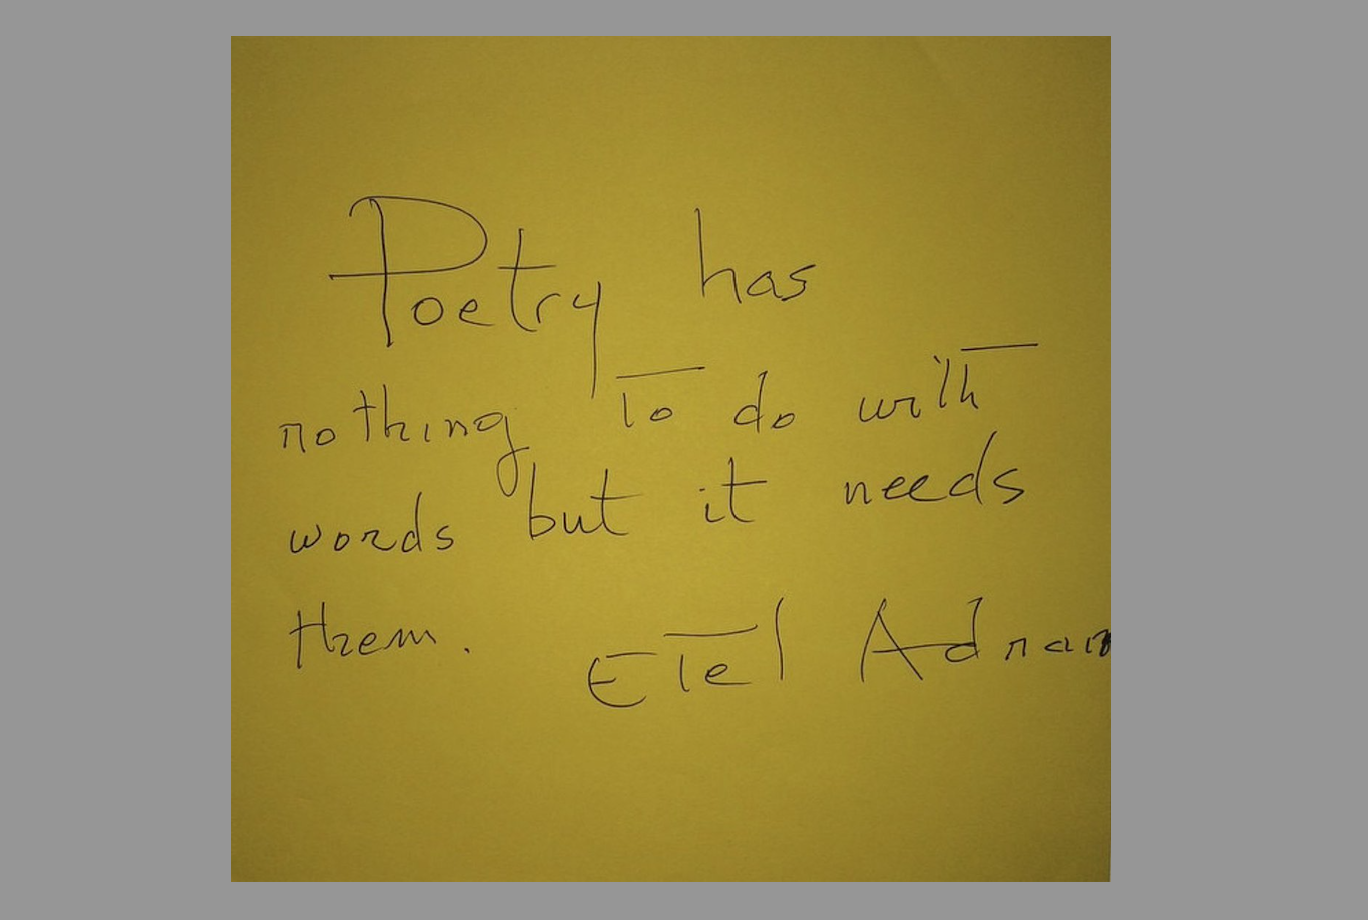 Poetry has
nothing to do with
words but it needs
them. Etel Adnan